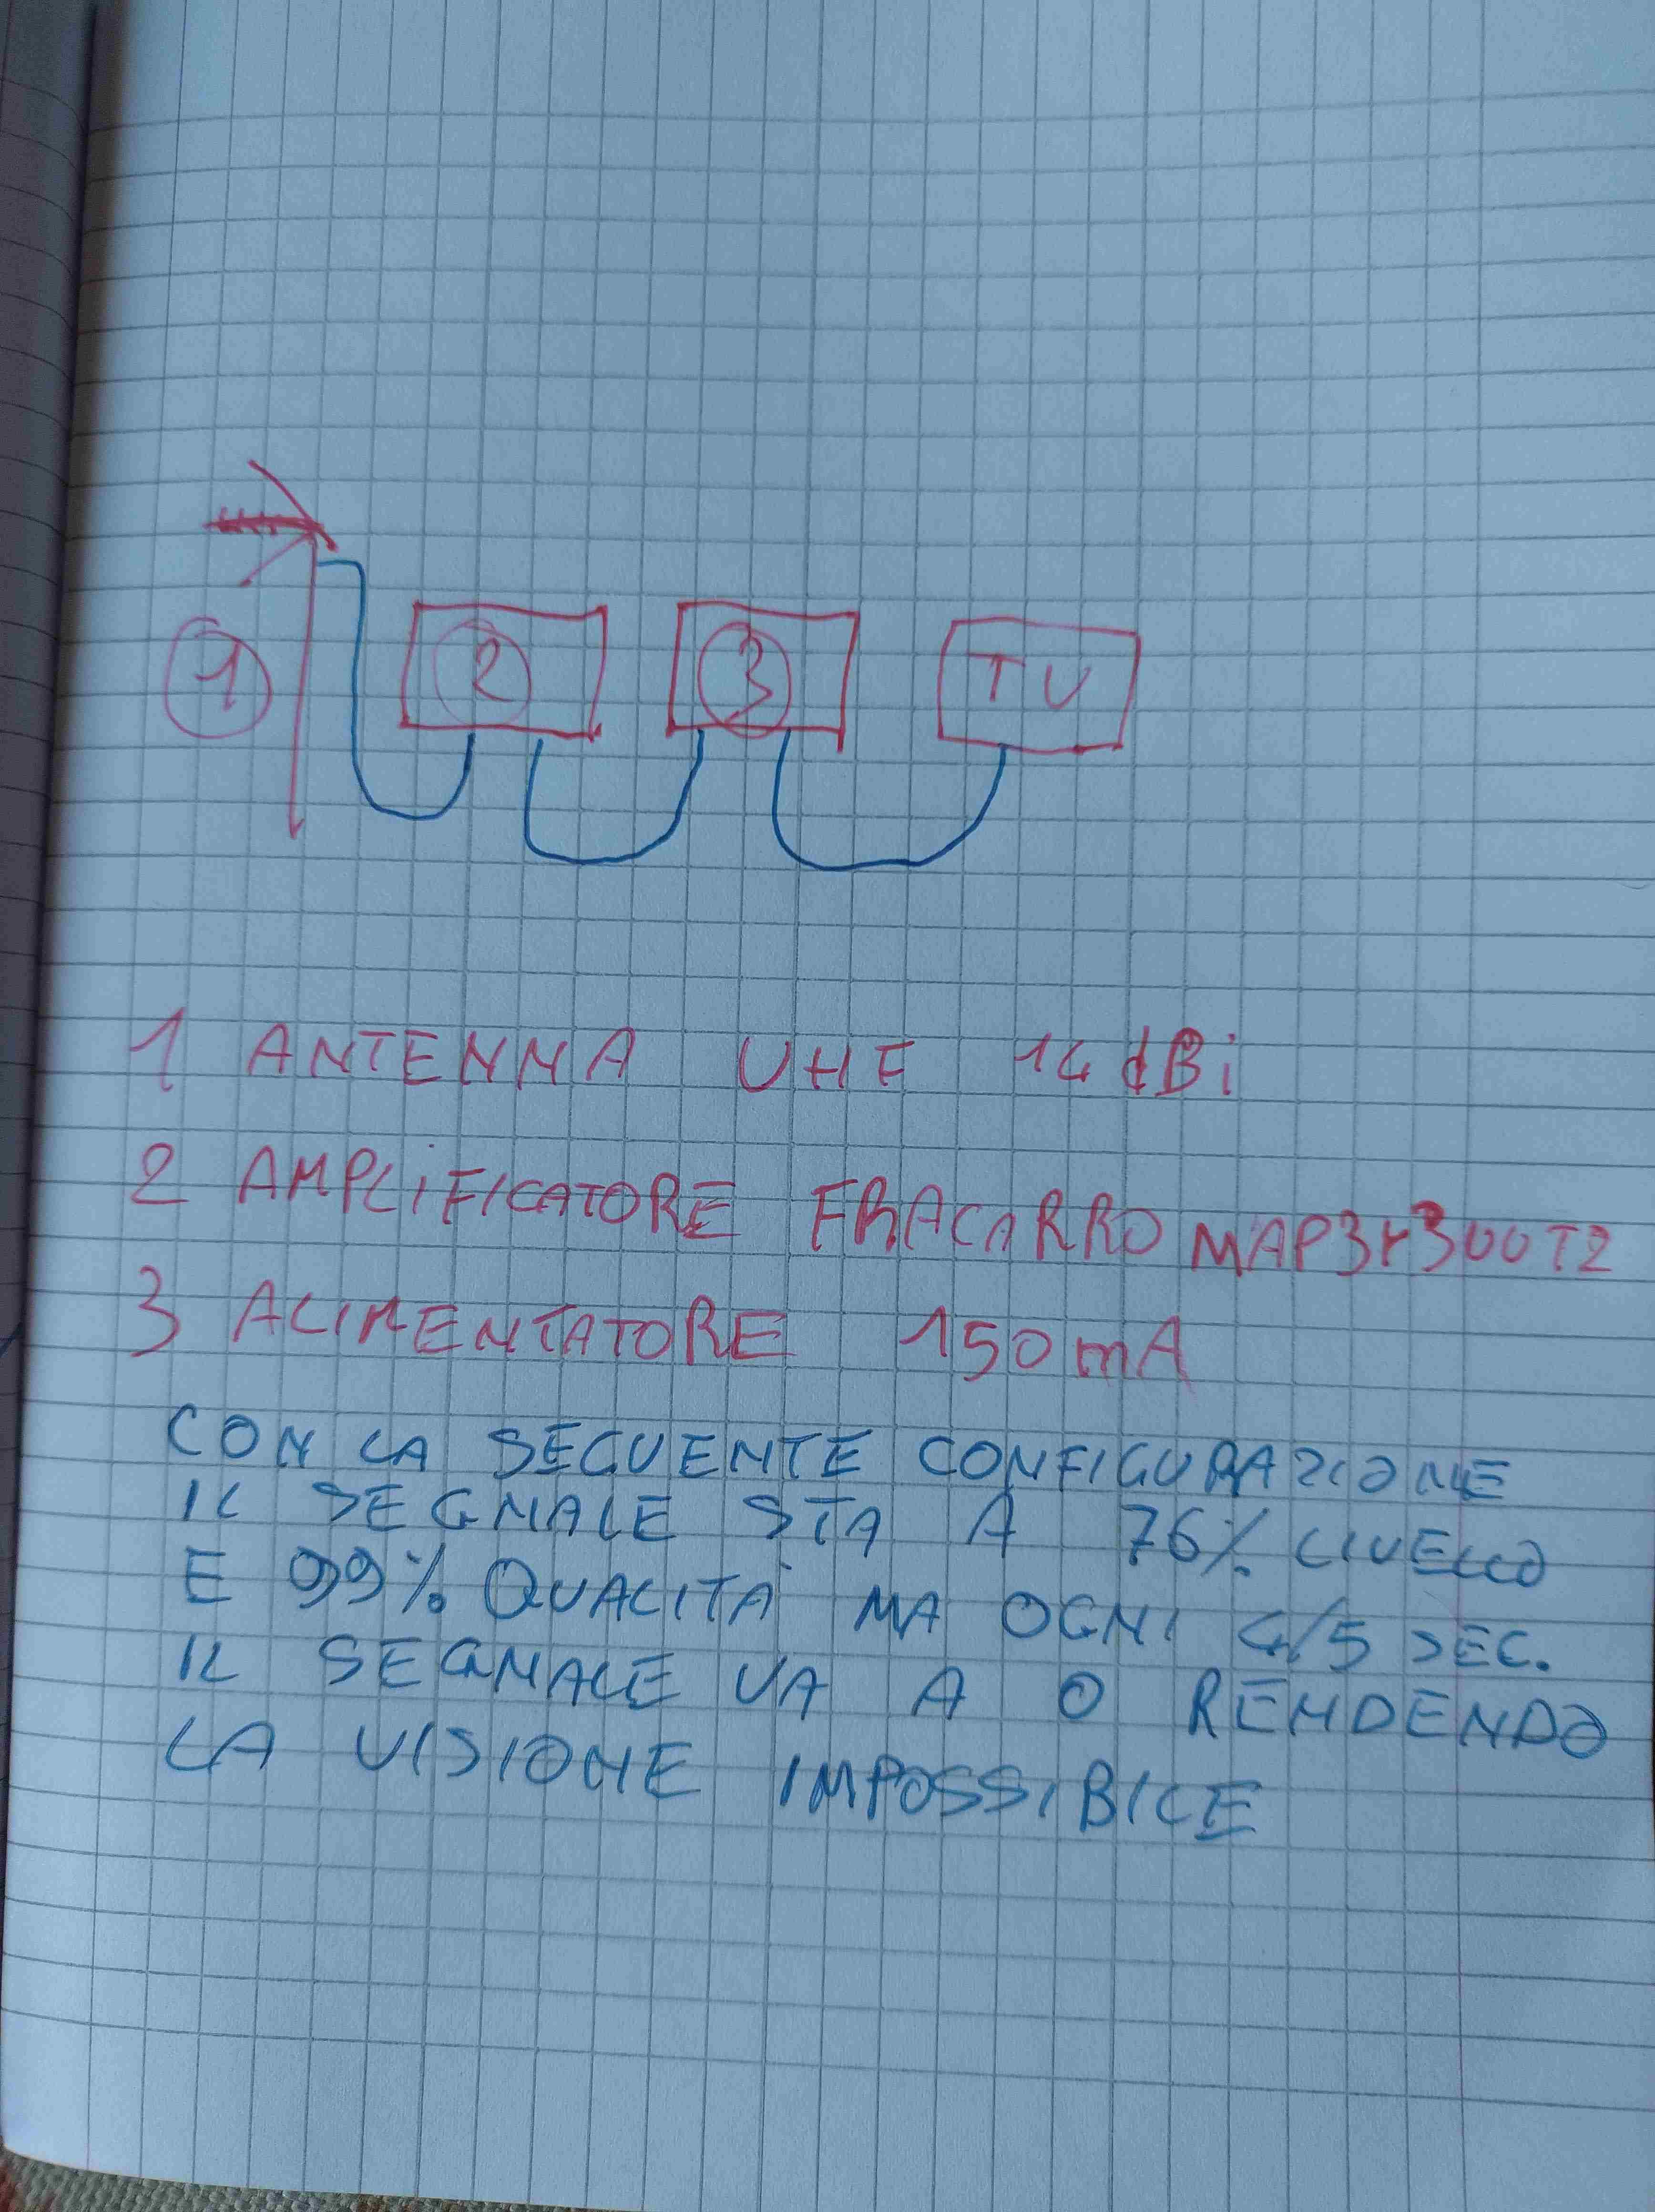 1
2
3
TV
1 ANTENNA UHF 14 dBi
2 AMPLIFICATORE FRACARRO MAP3r300T2
3 ALIMENTATORE 150mA
CON LA SEGUENTE CONFIGURAZIONE
IL SEGNALE STA A 76% LIVELLO
E 99% QUALITA' MA OGNI 4/5 SEC.
IL SEGNALE VA A 0 RENDENDO
LA VISIONE IMPOSSIBILE